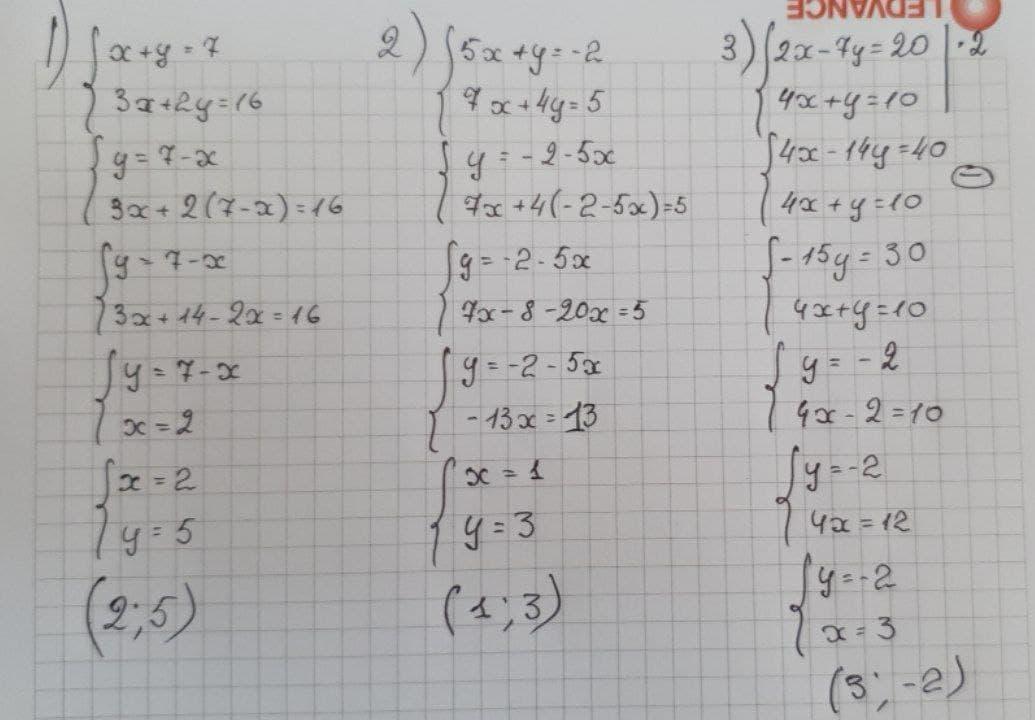 LEDVANCE
1) x + y = 7
3x + 2y = 16
y = 7 - x
3x + 2(7 - x) = 16
y = 7 - x
3x + 14 - 2x = 16
y = 7 - x
x = 2
x = 2
y = 5
(2; 5)
2) 5x + y = -2
7x + 4y = 5
y = -2 - 5x
7x + 4(-2 - 5x) = 5
y = -2 - 5x
7x - 8 - 20x = 5
y = -2 - 5x
-13x = 13
x = 1
y = 3
(1; 3)
3) 2x - 7y = 20 | · 2
4x + y = 10
4x - 14y = 40
4x + y = 10
-
-15y = 30
4x + y = 10
y = -2
4x - 2 = 10
y = -2
4x = 12
y = -2
x = 3
(3; -2)